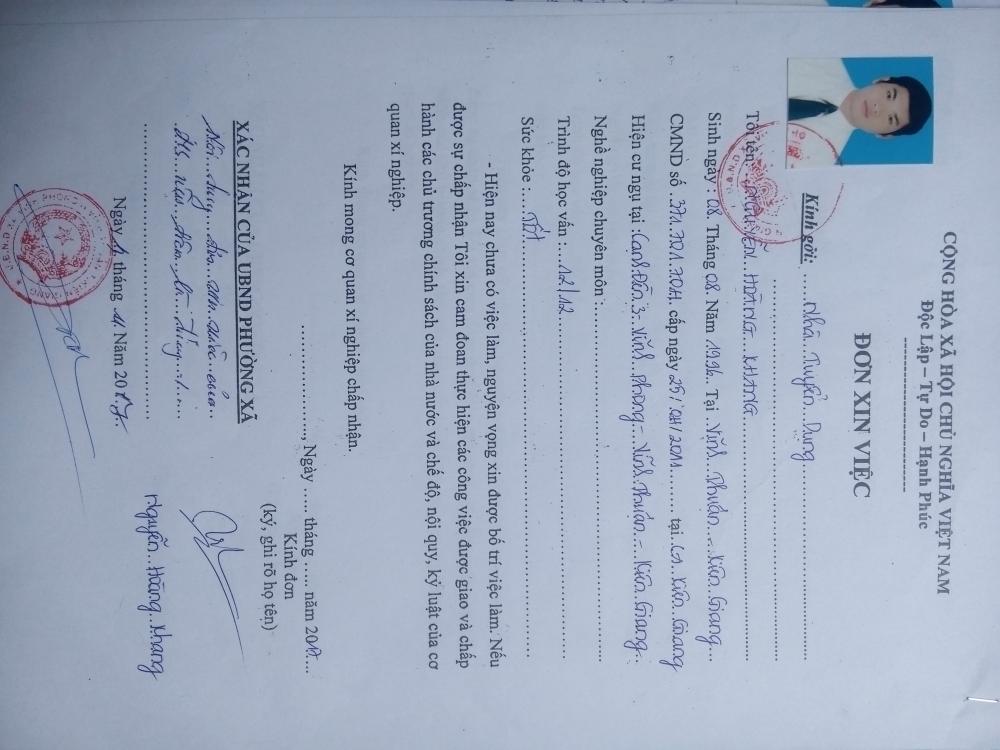 CỘNG HÒA XÃ HỘI CHỦ NGHĨA VIỆT NAM
Độc Lập – Tự Do – Hạnh Phúc
ĐƠN XIN VIỆC
Kính gởi: Nhà Tuyển Dụng
Tôi tên: NGUYỄN HOÀNG KHANG
Sinh ngày: 08 Tháng 08 Năm 1996 Tại Vĩnh Thuận – Kiên Giang
CMND số 371.701.704, cấp ngày 25/04/2011 tại CA Kiên Giang
Hiện cư ngụ tại: Cạnh Đền 3 – Vĩnh Phong – Vĩnh Thuận – Kiên Giang
Nghề nghiệp chuyên môn:
Trình độ học vấn: 12/12
Sức khỏe: Tốt
- Hiện nay chưa có việc làm, nguyện vọng xin được bố trí việc làm. Nếu
được sự chấp nhận Tôi xin cam đoan thực hiện các công việc được giao và chấp
hành các chủ trương chính sách của nhà nước và chế độ, nội quy, kỷ luật của cơ
quan xí nghiệp.
Kính mong cơ quan xí nghiệp chấp nhận.
, Ngày tháng năm 2017
Kính đơn
(ký, ghi rõ họ tên)
Nguyễn Hoàng Khang
XÁC NHẬN CỦA UBND PHƯỜNG XÃ
Ngày tháng 11 Năm 2017